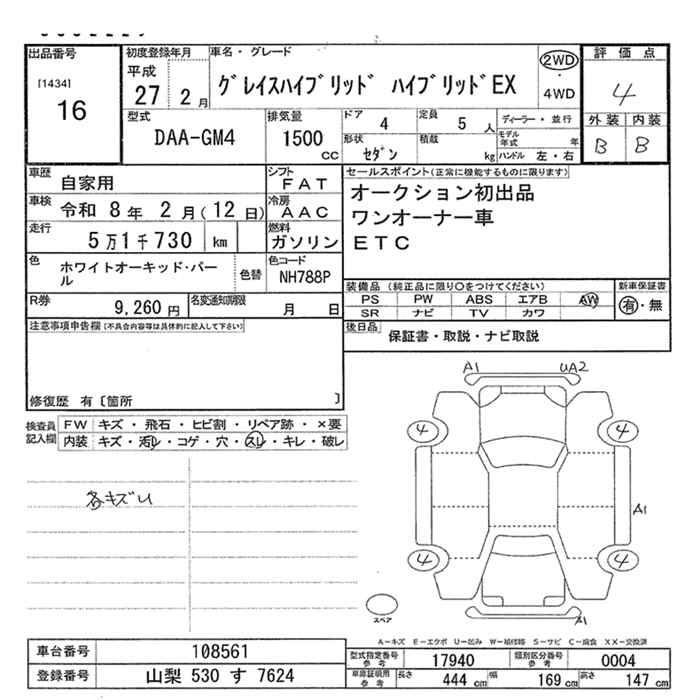 出品番号
[1434]
16
初度登録年月
平成
27 2月
車名・グレード
グレイスハイブリッド ハイブリッドEX
2WD
・
4WD
評価点
4
外装 内装
B B
型式
DAA-GM4
排気量
1500 cc
ドア 4
定員 5人
形状 セダン
積載 kg
ディーラー・並行
モデル年式 年
ハンドル 左・右
車歴 自家用
シフト FAT
車検 令和 8年 2月(12日)
冷房 AAC
走行 5万1千730 km
燃料 ガソリン
色 ホワイトオーキッド・パール
色替
色コード NH788P
R券 9,260円
名変通知期限 月 日
セールスポイント(正常に機能するものに限ります)
オークション初出品
ワンオーナー車
ETC
装備品(純正品に限り○をつけてください)
PS PW ABS エアB AW
SR ナビ TV カワ
新車保証書
有・無
後日品 保証書・取説・ナビ取説
注意事項申告欄(不具合内容等は具体的に記入して下さい)
修復歴 有〔箇所 〕
検査員記入欄
FW キズ・飛石・ヒビ割・リペア跡・×要
内装 キズ・汚レ・コゲ・穴・スレ・キレ・破レ
各キズU
A1 UA2
4 4
A1
4 4
A1
スペア
A-キズ E-エクボ U-凹み W-補修跡 S-サビ C-腐食 XX-交換済
車台番号 108561
登録番号 山梨 530 す 7624
型式指定番号 参考 17940
類別区分番号 参考 0004
車庫証明用 参考 長さ 444 cm 幅 169 cm 高さ 147 cm